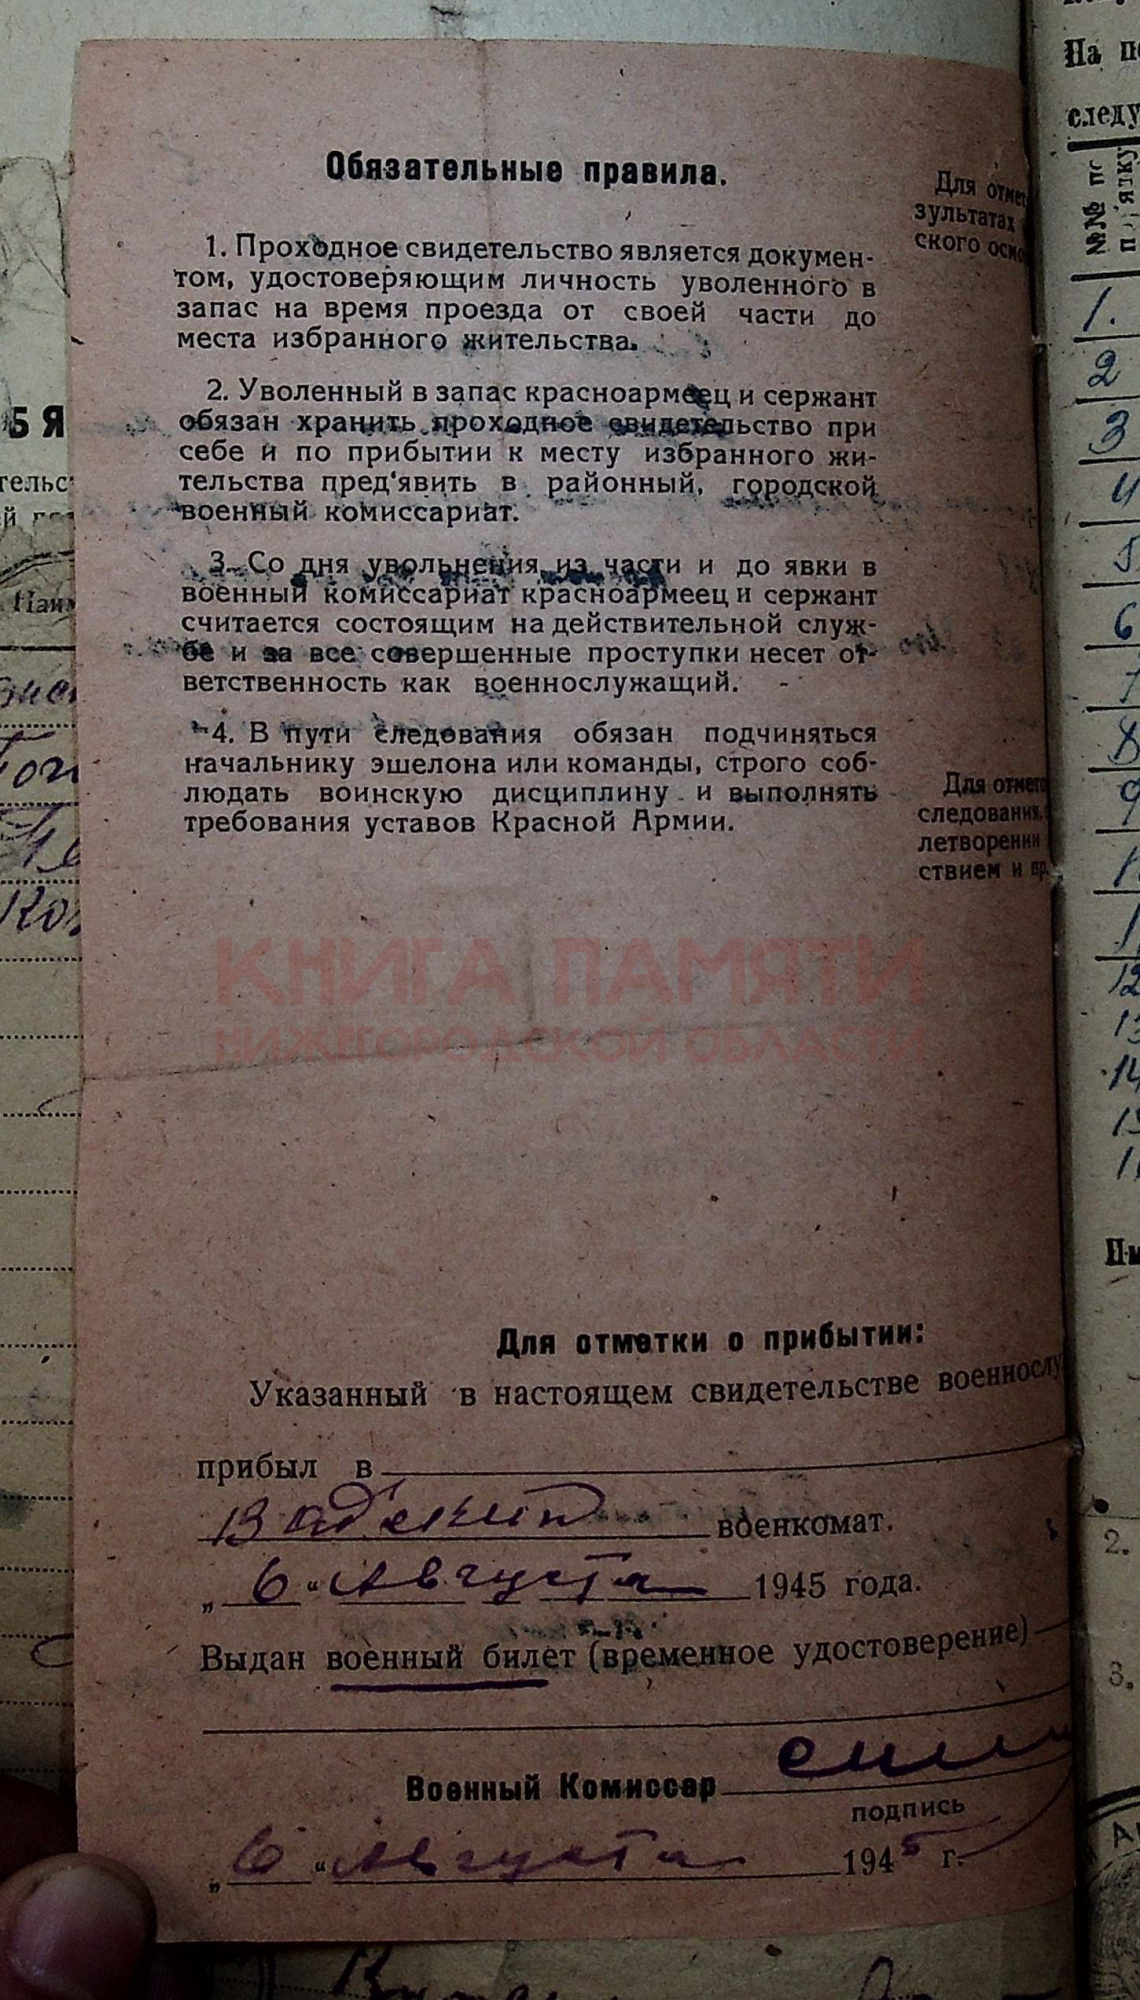 Обязательные правила.
1. Проходное свидетельство является докумен-
том, удостоверяющим личность уволенного в
запас на время проезда от своей части до
места избранного жительства.
2. Уволенный в запас красноармеец и сержант
обязан хранить проходное свидетельство при
себе и по прибытии к месту избранного жи-
тельства пред'явить в районный, городской
военный комиссариат.
3. Со дня увольнения из части и до явки в
военный комиссариат красноармеец и сержант
считается состоящим на действительной служ-
бе и за все совершенные проступки несет от-
ветственность как военнослужащий.
4. В пути следования обязан подчиняться
начальнику эшелона или команды, строго соб-
людать воинскую дисциплину и выполнять
требования уставов Красной Армии.
КНИГА ПАМЯТИ
НИЖЕГОРОДСКОЙ ОБЛАСТИ
Для отметки о прибытии:
Указанный в настоящем свидетельстве военнослу
прибыл в
военкомат.
„ 6 " Августа 1945 года.
Выдан военный билет (временное удостоверение)
Военный Комиссар
подпись
„ 6 " Августа 1945 г.
Для отмет
зультатах
ского осмо
Для отмет
следования,
летворении
ствием и пр.
На п
следу
№№ по
1.
2
3
4
5
6
7
8
9
12
14
2.
3.